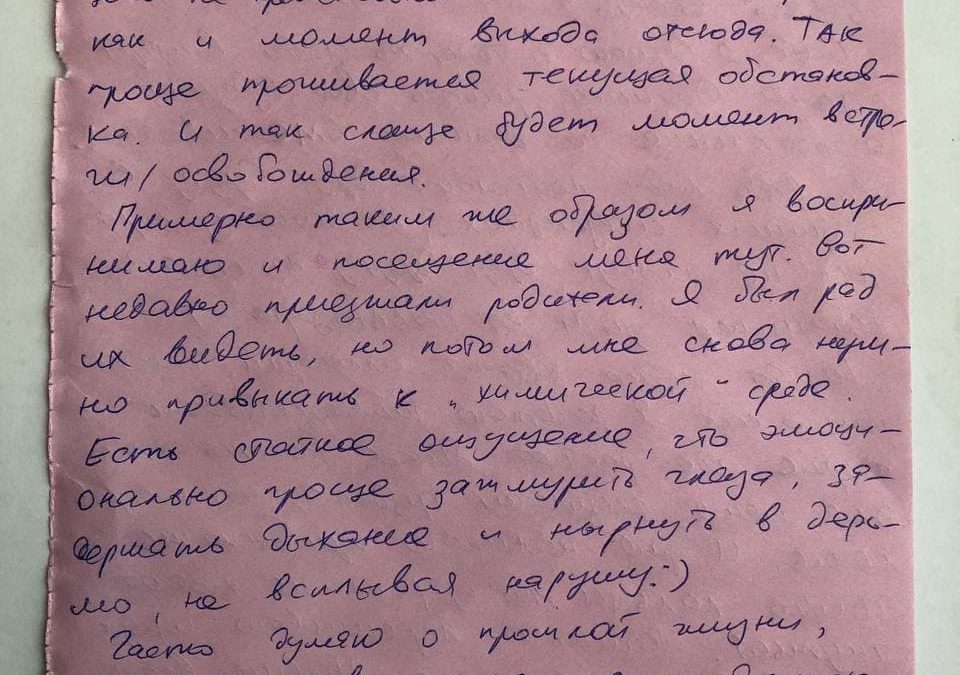 как и момент выхода отсюда. Так
проще проживается текущая обстанов-
ка. И так слаще будет момент встре-
чи/освобождения.
Примерно таким же образом я воспри-
нимаю и посещение меня тут. Вот
недавно приезжали родители. Я был рад
их видеть, но потом мне снова нужно
но привыкать к „химической" среде.
Есть стойкое ощущение, что эмоци-
онально проще зажмурить глаза, за-
держать дыхание и нырнуть в дерь-
мо, не всплывая наружу:)
Часто думаю о прошлой жизни,